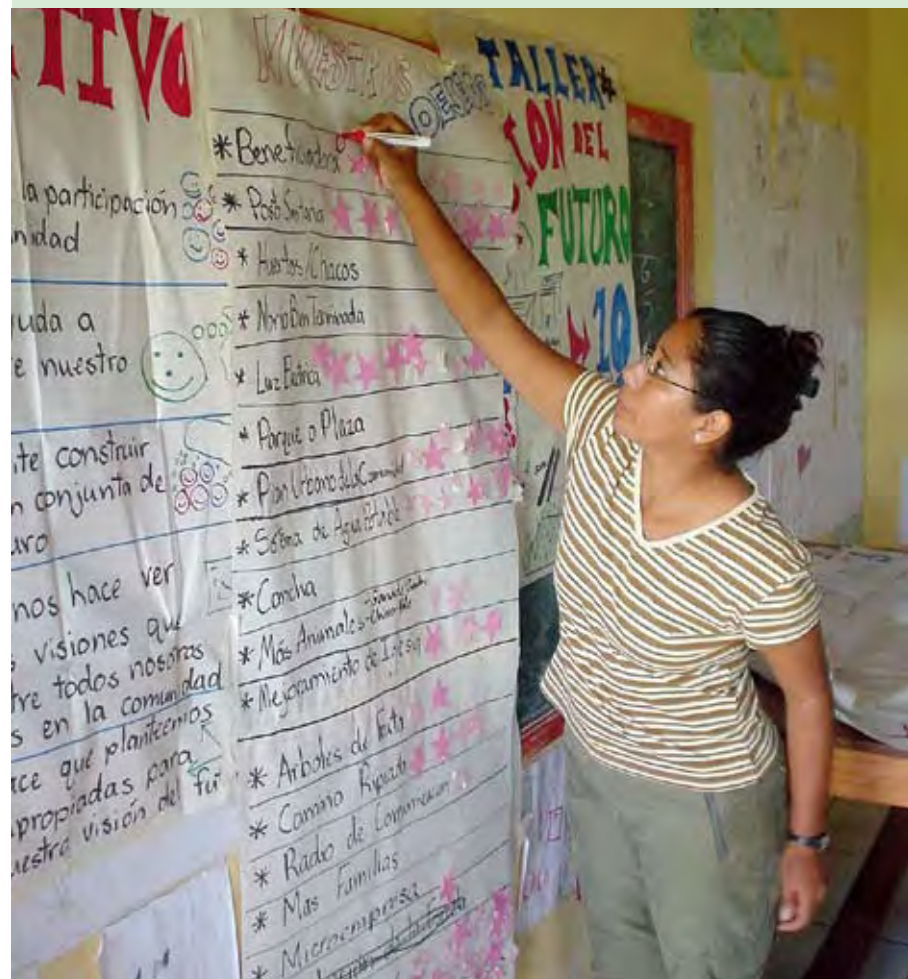 TIVO
la participación
nidad
uda a
e nuestro
te construir
n conjunta de
uro
nos hace ver
visiones que
tre todos nosotros
s en la comunidad
ace que planteemos
propiadas para
uestra visión del fu
NUESTROS
* Beneficiadora
* Posta Sanitaria
* Huertos/Chacos
* Noria Bien Terminada
* Luz Eléctrica
* Parque o Plaza
* Plan Urbano de la Comunidad
* Sistema de Agua Potable
* Cancha
* Más Animales
* Mejoramiento de Iglesia
* Arboles de
* Camino Ripiado
* Radio de Comunicación
* Mas Familias
* Microempresa
TALLER*
ION DEL
FUTURO
10